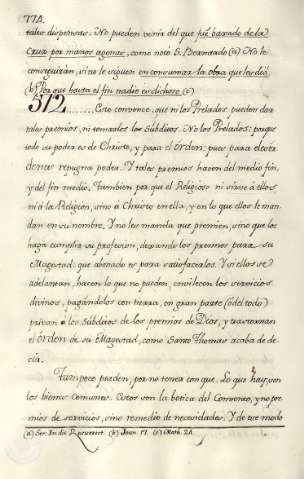 774.
tales dispensas. No pueden venir del que fué baxado de la
Cruz por manos agenas, como notó S. Bernardo (a) No le
conseguirán, sino le siguen en consumar la obra que les dió
(b) Por que hasta el fin nadie es dichoso (c)
512........Esto convence, que ni los Prelados pueden dar
tales premios, ni tomarlos los Súbditos. No los Prelados: porque
todo su poder es de Christo, y para el orden: pues para
repugna poder. Y tales premios hacen del medio fin,
y del fin medio. Tambien por que el Religioso ni sirve á ellos
ni á la Religion, sino á Christo en ella, y en lo que ellos le man
dan en su nombre. Y no les manda que premien, sino que los
haga cumplir su profesion, dexando los premios para su
Magestad: que abonado es para satisfacerlos. Y si ellos se
adelantan, hacen lo que no pueden, envilecen los servicios
divinos, pagándolos con tierra, en gran parte (ó del todo)
privan á los Súbditos de los premios de Dios, y trastornan
el orden de su Magestad, como Santo Thomas acaba de de
cir.
Tampoco pueden, por no tener con que. Lo que hay, son
los bienes comunes. Estos son la botica del Convento, y no pre
mios de servicios, sino remedio de necesidades. Y de ese modo
(a) Ser. in die (b) Joan. 17. (c) Math. 24.